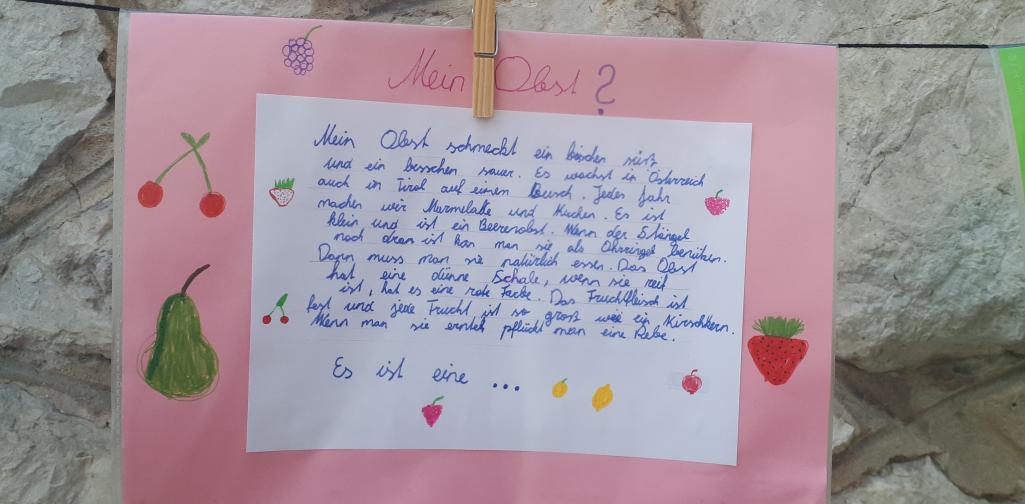 Mein Obst ?
Mein Obst schmeckt ein bisschen süß
und ein bisschen sauer. Es wachst in Österreich
auch in Tirol auf einen Busch. Jedes Jahr
machen wir Marmelade und Kuchen. Es ist
klein und ist ein Beerenobst. Wenn der Stängel
noch dran ist kan man sie als Ohrringel
Dann muss man sie natürlich essen. Das Obst
hat, eine dünne Schale, wenn sie reif
ist, hat es eine rote Farbe. Das Fruchtfleisch ist
fest und jede Frucht ist so groß wie ein Kirschkern.
Wenn man sie erntet pflückt man eine Rebe.
Es ist eine ...